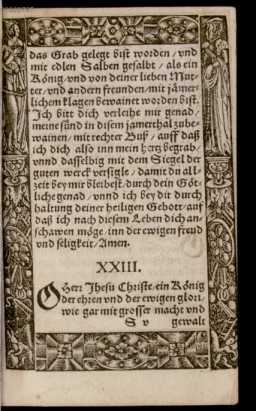 das Grab gelegt bist worden / vnd
mit edlen Salben gesalbt / als ein
König / vnd von deiner lieben Mut-
ter / vnd andern freunden / mit jämer-
lichem klagen bewainet worden bist.
Ich bitt dich verleihe mir genad /
meine sünd in disem jamerthal zube-
wainen / mit rechter Buß / auff daß
ich dich also inn mein hertz begrab /
vnnd dasselbig mit dem Sigel der
guten werck versigle / damit du all-
zeit bey mir bleibest / durch dein Göt-
liche genad / vnnd ich bey dir durch
haltung deiner heiligen Gebott / auf
daß ich nach diesem Leben dich an-
schawen möge / inn der ewigen freud
vnd seligkeit / Amen.
XXIII.
O Herr Jhesu Christe / ein König
der ehren vnd der ewigen glori /
wie gar mit grosser macht vnd
S v gewalt